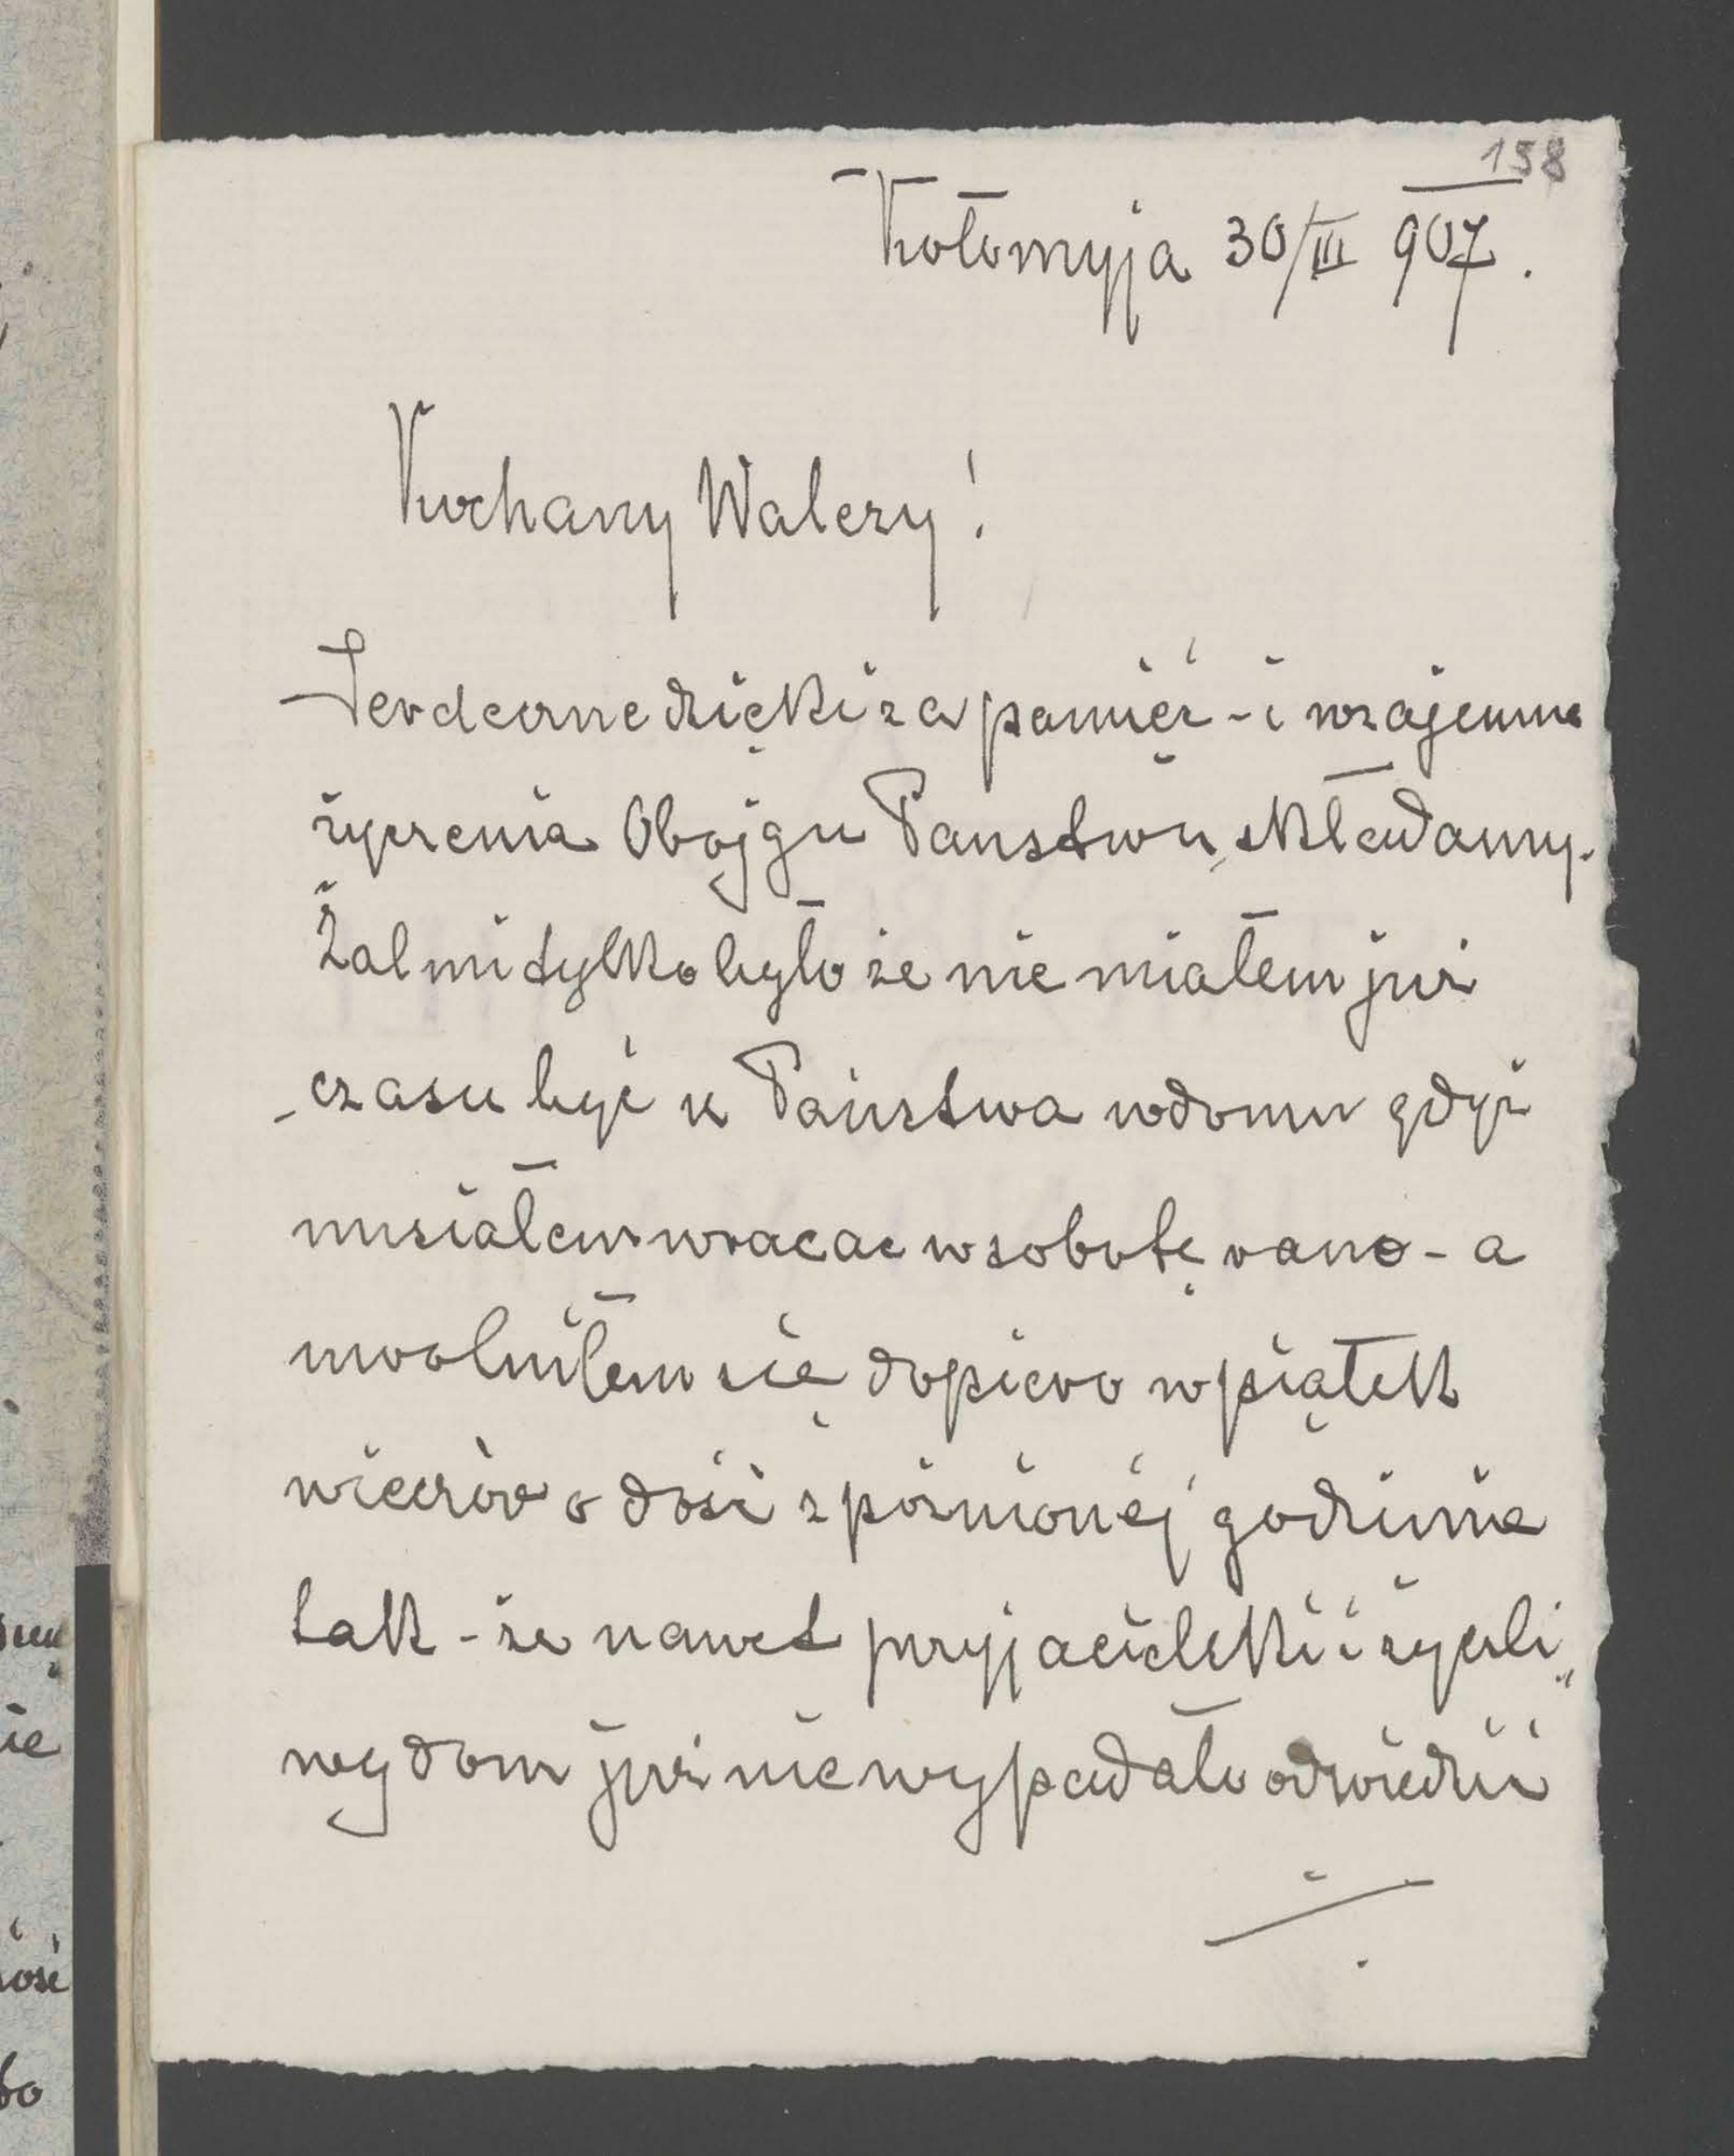 158
Kołomyja 30/III 907.
Kochany Walery!
Serdeczne dzięki za pamięć - i wzajemne
życzenia Obojgu Państwu składamy.
Żal mi tylko było że nie miałem już
czasu być u Państwa w domu gdyż
musiałem wracać w sobotę rano - a
uwolniłem się dopiero w piątek
wieczór o dość spóźnionéj godzinie
tak - że nawet przyjacielski i życzli„
wy dom już nie wypadało odwiedzić